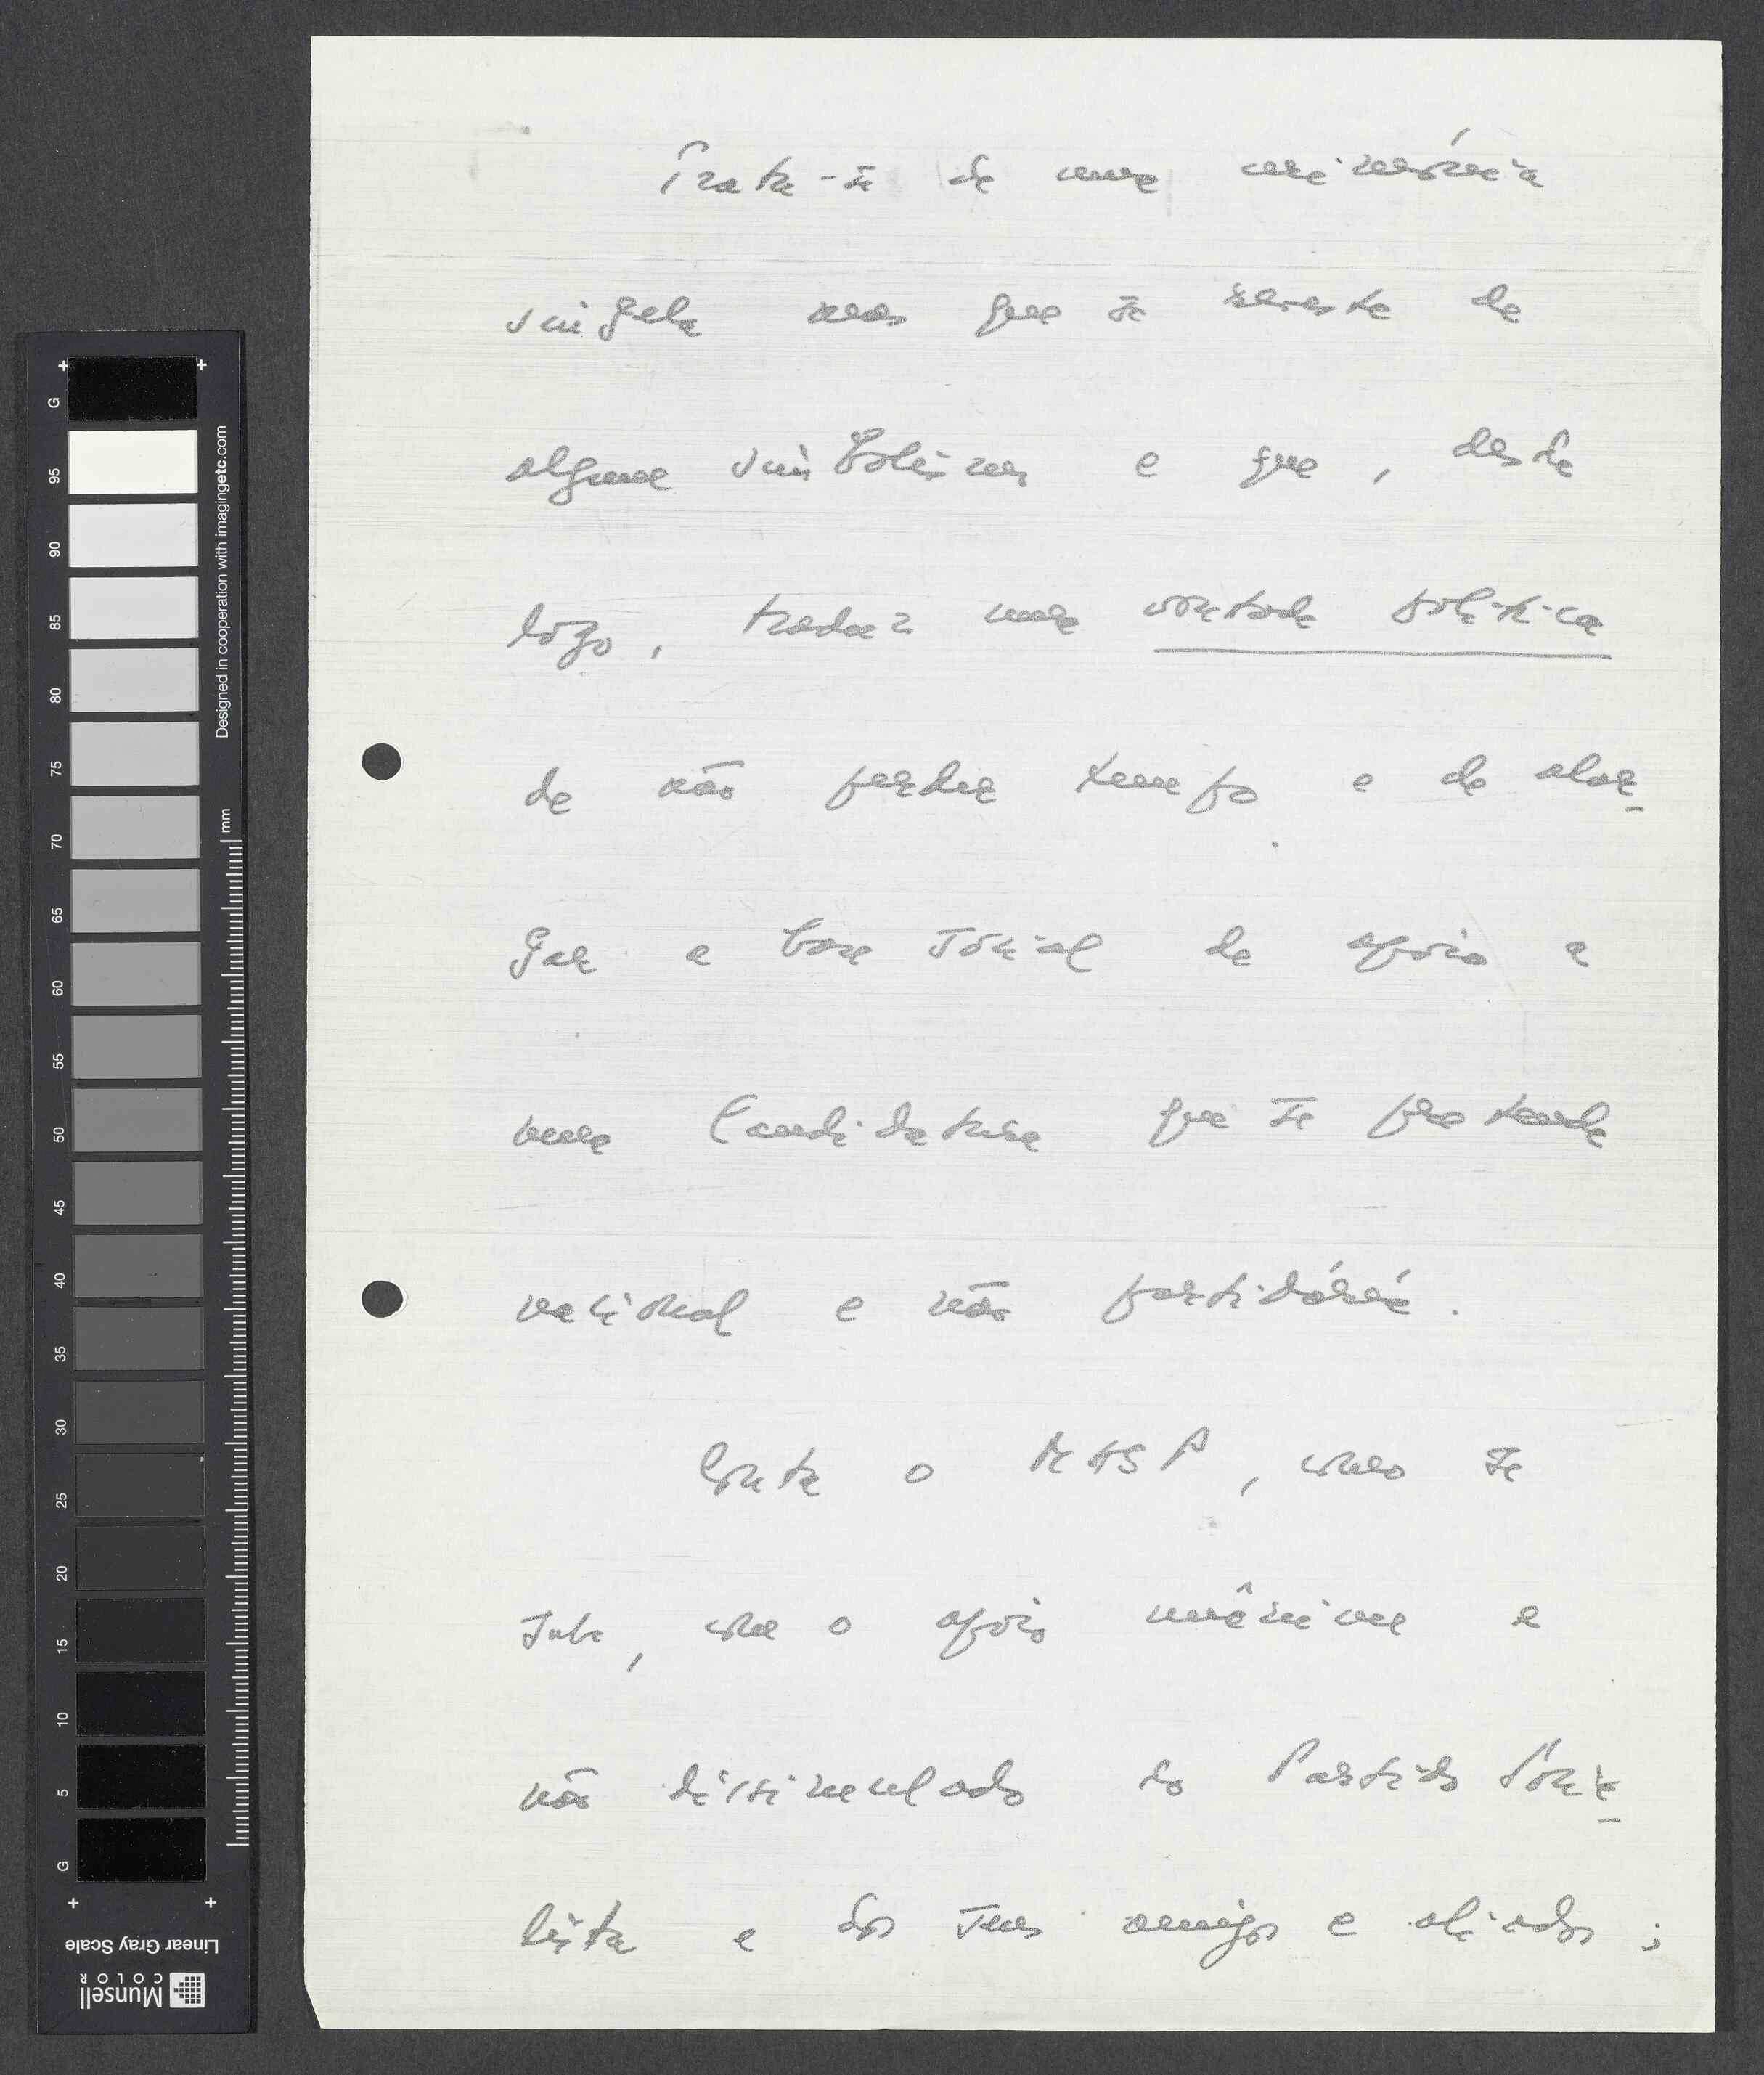 Trata-se de uma cerimónia
singela mas que se reveste de
algum simbolismo e que, desde
logo, traduz uma vontade política
de não perder tempo e de alar-
gar a base social de apoio a
uma candidatura que se pretende
nacional e não partidária.
Conta o MASP, como se
sabe, com o apoio unânime e
não dissimulado do Partido Socia-
lista e dos seus amigos e aliados;
G
95
90
85
80
75
70
65
60
55
50
45
40
35
30
25
20
15
10
5
G
Designed in cooperation with imagingetc.com
mm
Linear Gray Scale
Munsell
COLOR